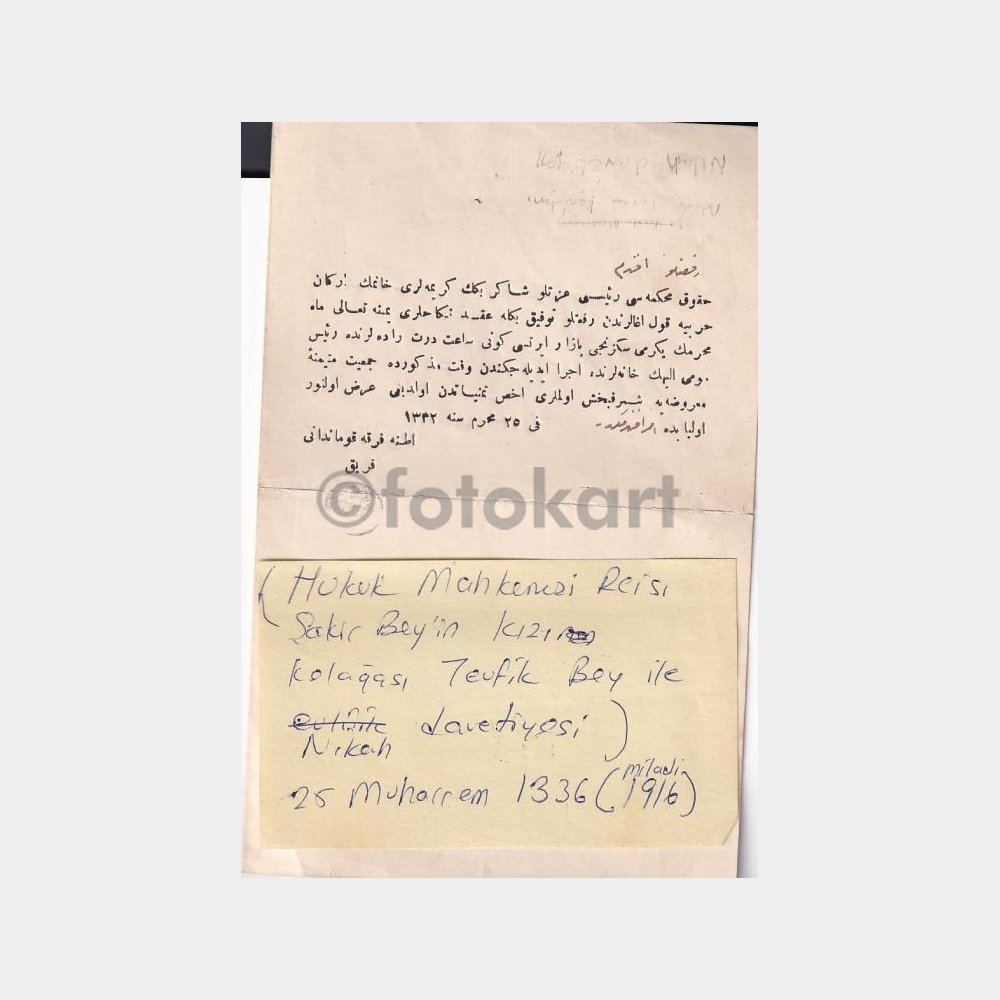 حقوق محكمه سی رئیسی عزتلو شاكر بكك كریمه لری خانمك اركان
حربیه قول اغالرندن رفعتلو توفیق بكله عقد نكاحلری بمنه تعالی ماه
محرمك یكرمی سكزنجی بازار ایرتسی كونی ساعت درت راده لرنده رئیس
مومی الیهك خانه لرنده اجرا ایدیله جكندن وقت مذكورده جمعیت متیمنهٔ
معروضه یه تشریفبخش اولملری اخص تمنیاتدن اولدیغی عرض اولنور
اولبابده
فی ٢٥ محرم سنه ١٣٢٢
اطنه فرقه قوماندانی
فریق
©fotokart
(Hukuk Mahkemesi Reisi
Şakir Bey'in kızı
kolağası Tevfik Bey ile
evlilik davetiyesi)
Nikah
25 Muharrem 1336 (miladi 1916)